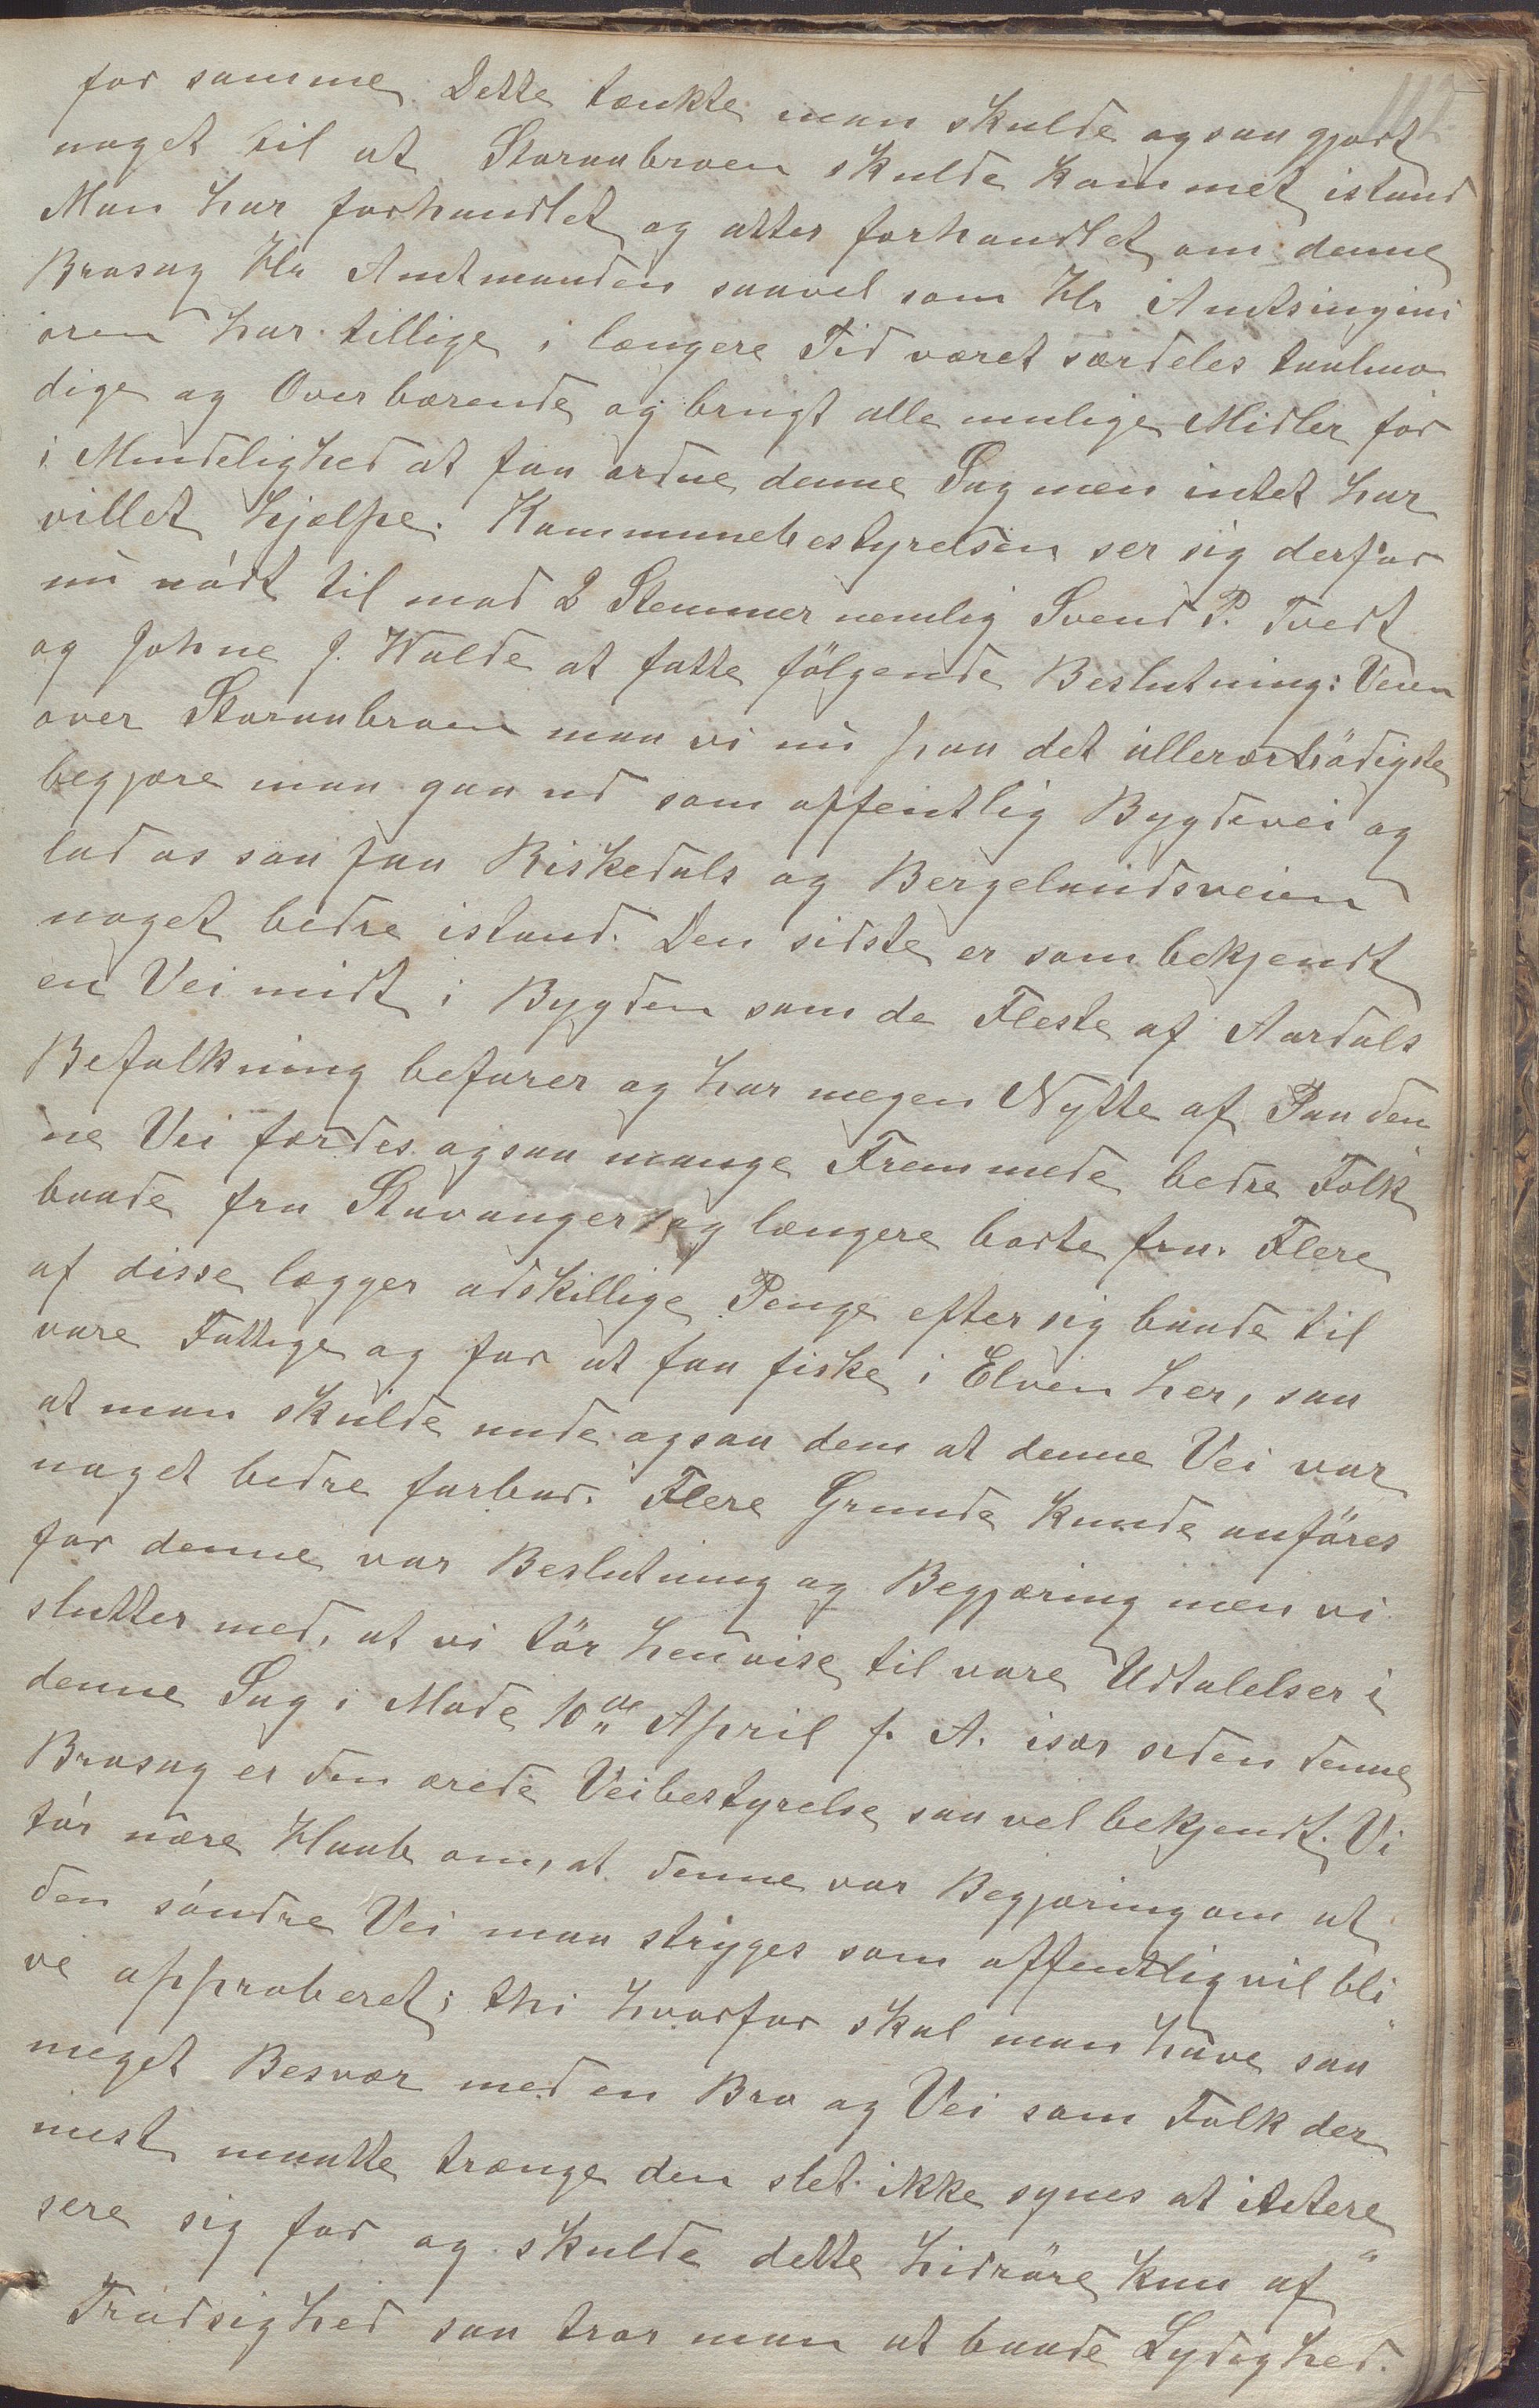 for samme. Dette tænkte man skulde ogsaa gjort
noget til at Storaabroen skulde kommet istand
Man har forhandlet og atter forhandlet om denne
Brosag Hr Amtmanden saavel som Hr Amtsingini
øren har tillige i længere Tid været særdeles taalmo
dige og Overbærende og brugt alle mulige Midler for
i Mindelighed at faa ordne denne Sag men intet har
villet hjælpe. Kommunebestyrelsen ser sig derfor
nu nødt til mod 2 Stemmer nemlig Svend P. Tvedt
og Johne J. Valde at fatte følgende Beslutning: Veien
over Storaabroen maa vi nu paa det allerærbødigste
begjære maa gaa ud som offentlig Bygdevei og
lad os saa faa Riskedals og Bergelandsveien
noget bedre istand. Den sidste er som bekjendt
en Vei midt i Bygden som de Fleste af Aardals
Befolkning befarer og har megen Nytte af Paa den
ne Vei færdes ogsaa mange Fremmede bedre Folk
baade fra Stavanger og længere borte fra. Flere
af disse lægger adskillige Penge efter sig baade til
vore Fattige og for at faa fiske i Elven her, saa
at man skulde unde ogsaa dem at denne Vei var
noget bedre farbar. Flere Grunde kunde anføres
for denne vor Beslutning og Begjæring men vi
slutter med, at vi tør henvise til vore Udtalelser i
denne Sag i Møde 10de April f. A. især siden denne
Brosag er den ærede Veibestyrelse saa vel bekjendt. Vi
tør nære Haab om, at denne vor Begjæring om at
den søndre Vei maa stryges som offentlig vil bli
ve approberet; thi hvorfor skal man have saa
meget Besvær med en Bro og Vei som Folk der
mest maatte trænge den slet ikke synes at intere
sere sig for og skulde dette hidrøre kun af
Trodsighed saa tror man at baade Lydighed.